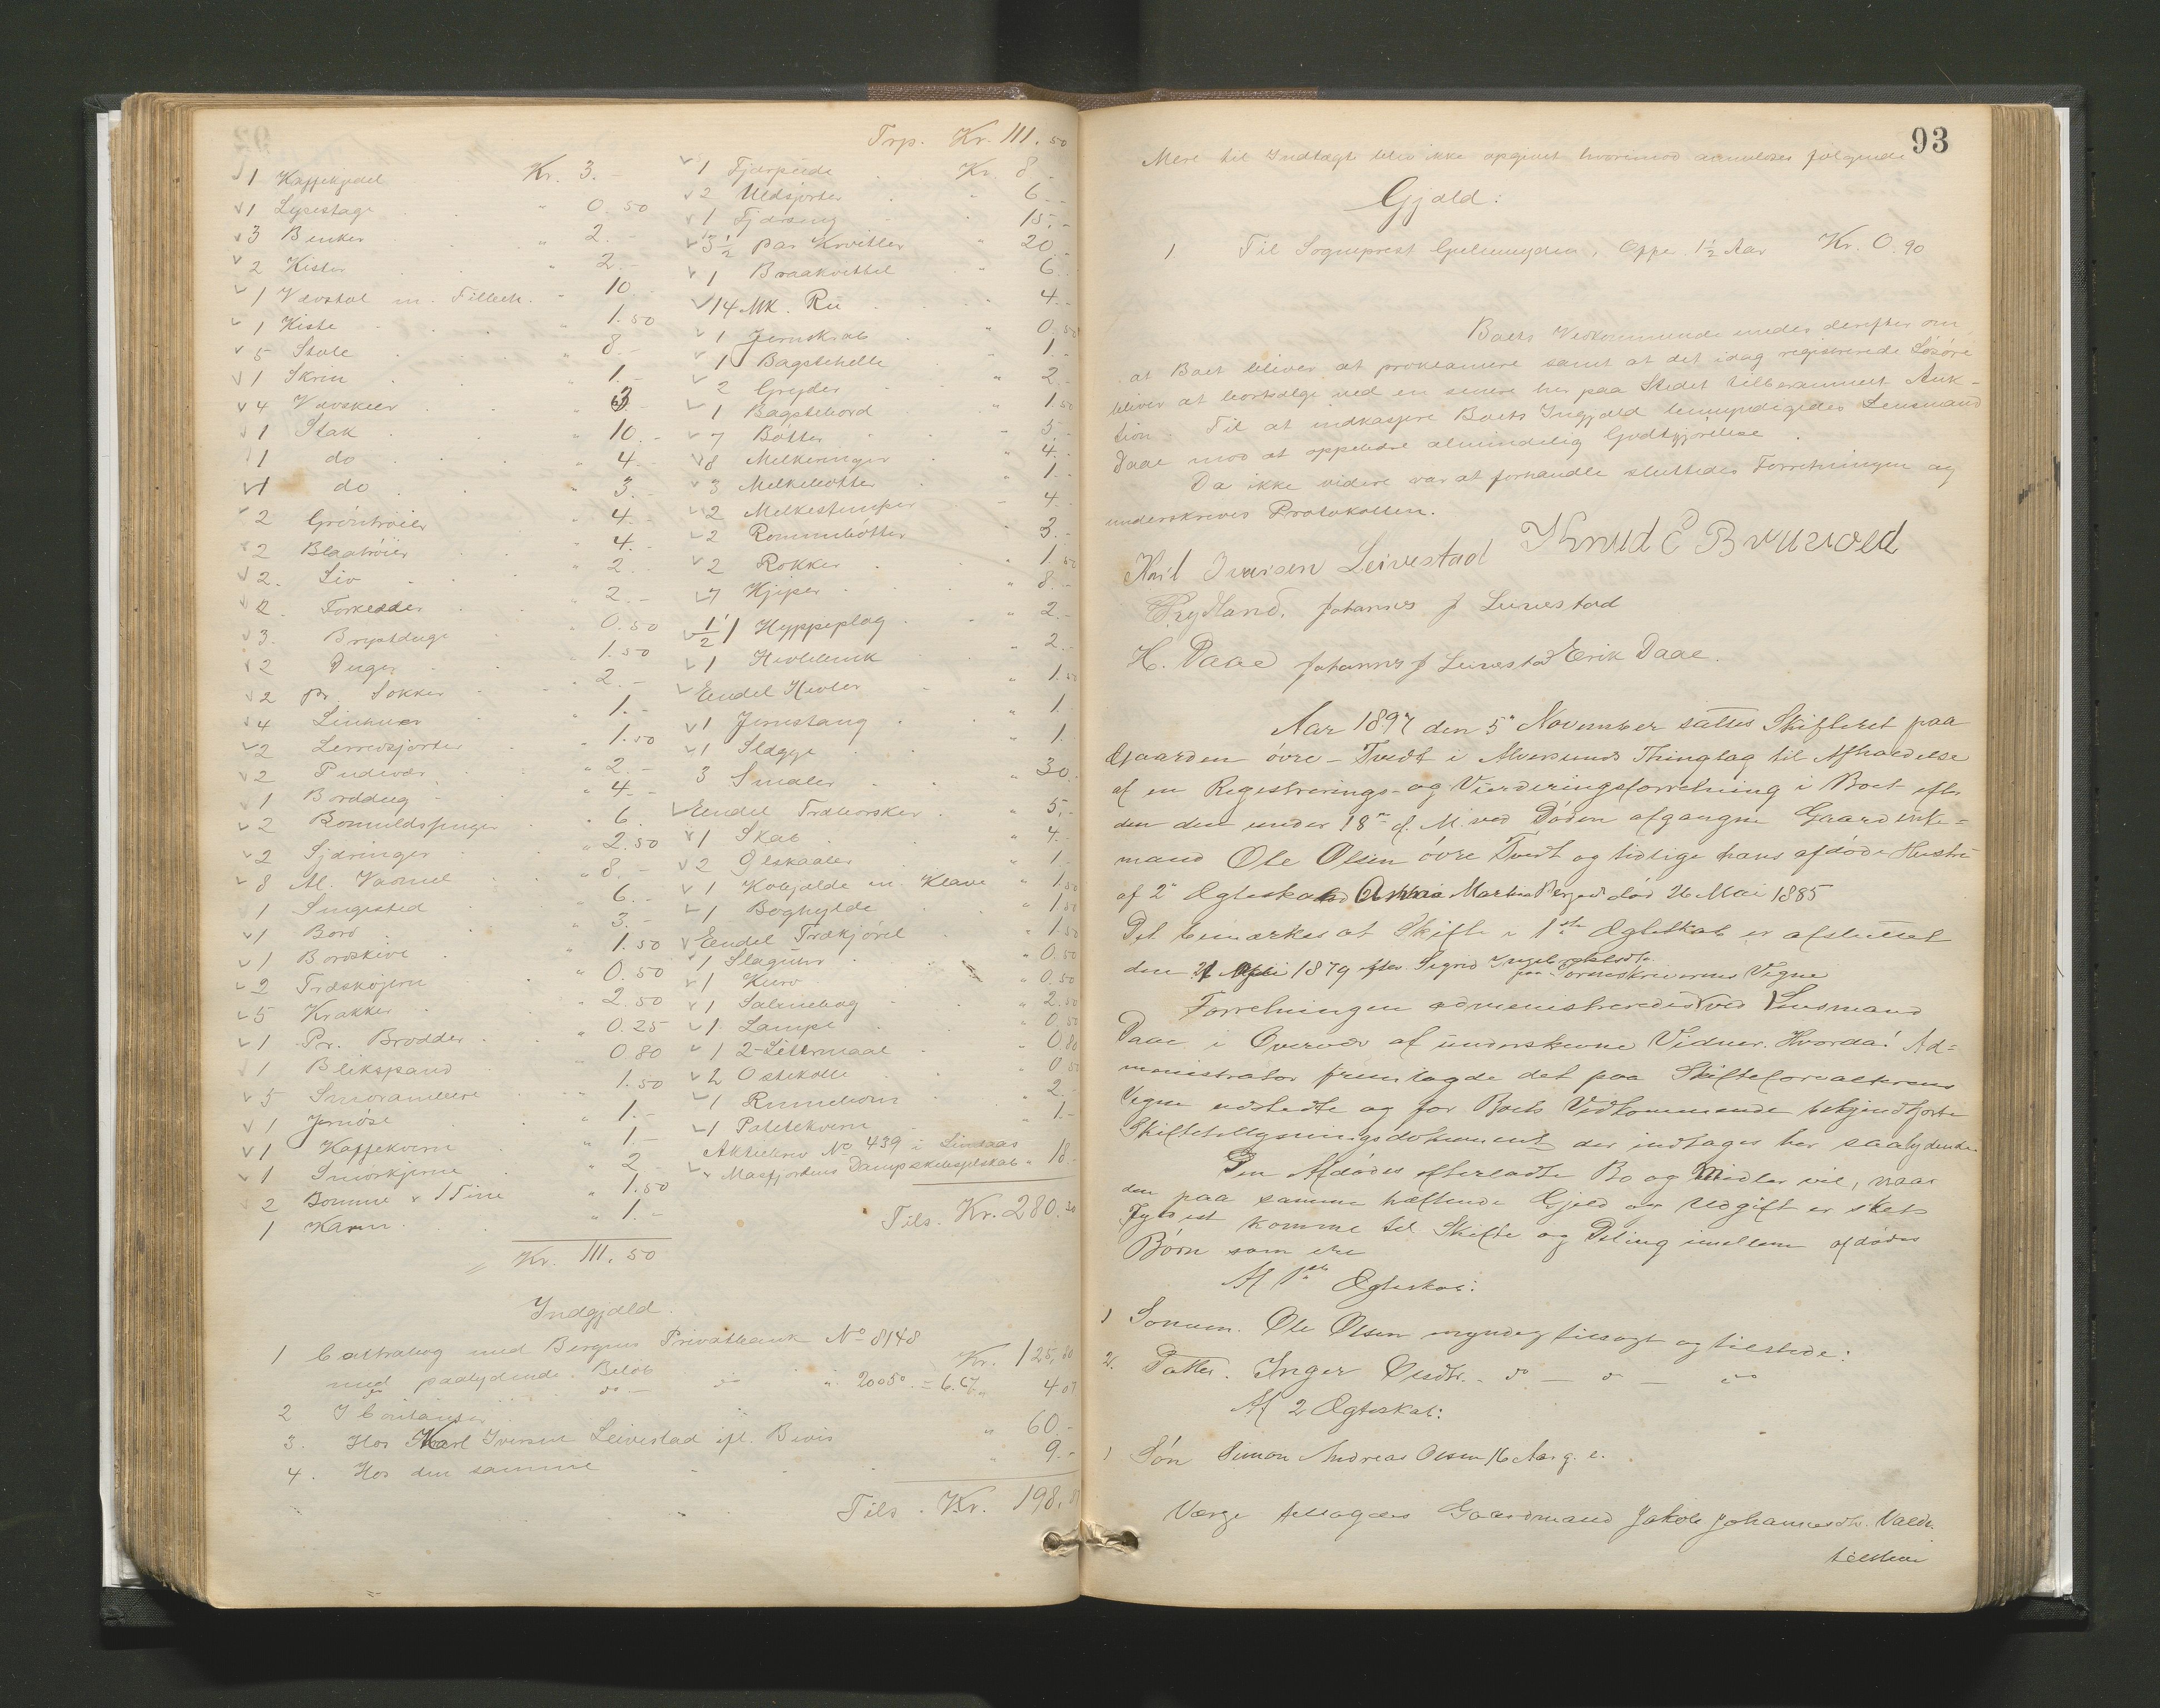 Trp. Kr. 111.50
1 Kaffekjedel Kr. 3.-
1 Lysestage " 0.50
3 Benker " 2.-
2 Kister " 2.-
1 Vævstol m. Tilbeh. " 10
1 Kiste " 1.50
5 Stole " 8.-
1 Skrin " 1.-
4 Vævskeer 3.-
1 Stak " 10.-
1 do " 4.-
1 do " 3.-
2 Gröntröier " 4.-
2 Blaatröier " 4.-
2 Liv " 2.-
2 Forkedder " 2.-
3 Brystduge " 0.50
2 Duger " 1.50
2 pr. Sokker " 2.-
4 Linhuer " 1.-
2 Lerredsjorter " 1.50
2 Pudevar " 2.-
1 Borddug " 4.-
2 Bomuldstrøjer " 6.
2 Sjdringer " 2.50
8 Al. Vadmel " 8.-
1 Sengested " 6.-
1 Bord " 3.-
1 Bordskive " 1.50
2 Træskojern " 0.50
5 Krakker " 2.50
1 Par. Brodder " 0.25
1 Blikspand 0.80
5 Smörambere " 1.50
1 Jernöse " 1.-
1 Kaffekvern " 1.-
1 Smörkjerne " 2.-
2 Bomme & 1 Tine " 1.50
1 Karm " 1.-
Kr. 111.50
1 Fjærpude Kr. 8.-
2 Uldsjorter 6.-
1 Fjærseng " 15.-
3½ par Kvitler " 20.-
1 Braakvittel " 6.-
14 Mk. Ru " 4.-
1 Jernskrab " 0.50
1 Bagstehelle " 1.-
2 Gryder " 2.-
1 Bagstebord " 1.50
7 Bötter - 3.-
8 Melkeringer " 4.-
3 Melkebötter " 1.-
2 Melkestamper - 4.-
2 Rommebötter " 3.-
2 Rokker " 1.50
7 Kjiper " 8.-
½ Hyppeplog " 2.-
1 Hevlebenk " 2.-
Endel Hevler " 1.50
1 Jernstang " 1.
1 Slægge " 1.
3 Smaler " 30.
Endel Trætorsker " 5.-
1 Skab " 4.-
2 Ølskaaler " 1.-
1 Kobjelde m. Klave " 1.50
1 Boghylde " 1.50
Endel Trækjörel " 1.50
1 Slaguhr " 0.50
1 Kurv " 0.50
1 Salmebog " 2.50
1 Lampe " 0.50
1 2-Litermaal " 0.80
2 Ostekolle " 0.50
1 Rumehorn " 2.-
1 Potetekvern " 1.-
Aktiebrev No 439 i Lindaas
& Masfjordens Dampskibsselskab " 18.-
Tils. Kr. 280.30
Indgjæld.
1 Contrabog med Bergens Privatbank No 8148
med paalydende Beløb Kr. 125,80
2 I Contanter " 4.07
3. Hos Karl Iversen Leivestad ifl. Bevis " 60.-
4. Hos den samme " 9.-
Tils. Kr. 198,87
93
Mere til Indtægt blev ikke opgivet hvorimod anmeldtes følgende
Gjæld:
1 Til Sogneprest Gjelmuyden, Oppe. 1½ Aar Kr. 0.90
Boets Vedkommende enedes derefter om
at Boet bliver at proklamere samt at det idag registrerede Løsøre
bliver at bortsælge ved en senere her paa Stedet tilberammet Auk-
tion. Til at indkassere Boets Indgjæld bemyndigedes Lensmand
Daae mod at oppebære almindelig Godtgjörelse.
Da ikke videre var at forhandle sluttedes Forretningen og
underskreves Protokollen.
Knud E Bruvold
Karl Iversen Leivestad
Frydland. Johannes J Leivestad
H. Daae Johannes J Leivestad Erik Daae.
Aar 1897 den 5te November sattes Skifteret paa
Gaarden övre-Tvedt i Alversunds Thinglag til Afholdelse
af en Registrerings- og Vurderingsforretning i Boet efter
den den under 18de f. M. ved Döden afgangne Gaardenke-
mand Ole Olsen övre Tvedt og tidlige hans afdøde Hustru
af 2det Ægteskab Anna Marta død 26 Mai 1885
Det bemærkes at Skifte i 1ste Ægteskab er afsluttet
den 21 April 1879 efter Sigrid
paa Sorenskriverens Vegne
Forretningen administreredes ved Lensmand
Daae i Overvær af underskrevne Vidner. Hvorda! Ad-
ministrator fremlagde det paa Skifteforvalterens
Vegne udstedte og for Boets Vedkommende bekjendtgjorte
Skiftetillysningsdokument der indtages her saalydende
Den Afdödes efterladte Bo og Midler vil, naar
den paa samme hæftende Gjeld og Udgift er skeet
Fyldest komme til Skifte og Deling imellem afdødes
Børn som ere
Af 1ste Ægteskab:
1 Sønnen. Ole Olsen myndig tilsagt og tilstede:
2. Datter. Inger Olsdtr. - do - do - do
Af 2 Ægteskab:
1 Søn Simon Andreas Olsen 16 Aar g. l.
Værge tillagdes Gaardmand Jakob Johannes
tilstede